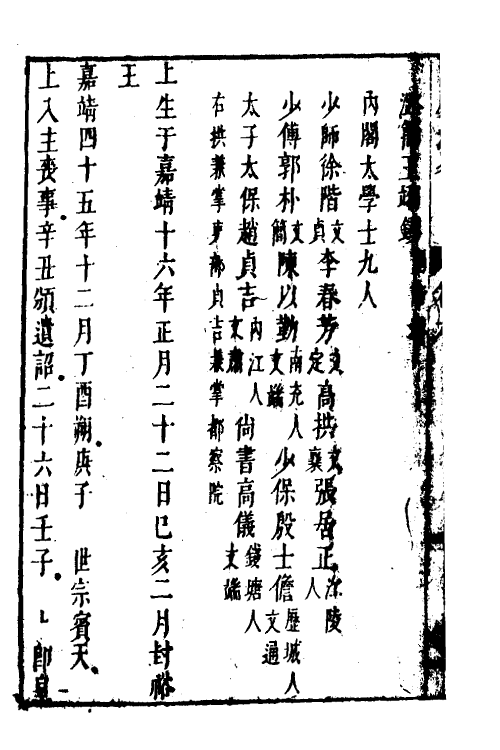 內閣大學士九人
少師徐階文貞李春芳文定高拱文襄張居正江陵人
少傅郭朴文簡陳以勤南充人文端少保殷士儋歷城人文通
太子太保趙貞吉內江人文肅尚書高儀錢塘人文端
右拱兼掌吏部貞吉兼掌都察院
上生于嘉靖十六年正月二十二日己亥二月封裕
王
嘉靖四十五年十二月丁酉朔庚子　世宗賓天
上入主喪事辛丑頒遺詔二十六日壬子　上即皇